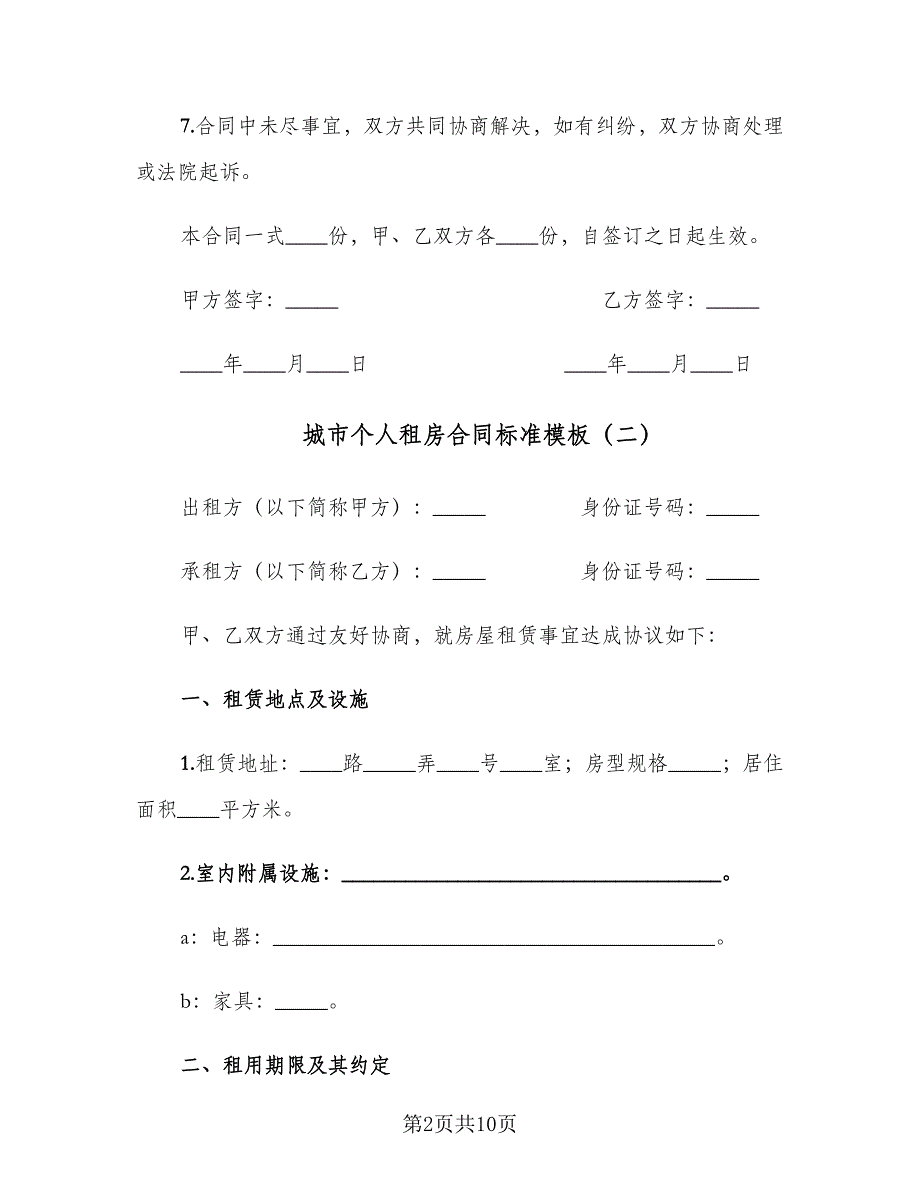 7.合同中未尽事宜，双方共同协商解决，如有纠纷，双方协商处理
或法院起诉。
本合同一式____份，甲、乙双方各____份，自签订之日起生效。
甲方签字：_____ 乙方签字：_____
____年____月____日 ____年____月____日
城市个人租房合同标准模板（二）
出租方（以下简称甲方）：_____ 身份证号码：_____
承租方（以下简称乙方）：_____ 身份证号码：_____
甲、乙双方通过友好协商，就房屋租赁事宜达成协议如下：
一、租赁地点及设施
1.租赁地址：____路_____弄____号____室；房型规格_____；居住
面积____平方米。
2.室内附属设施：____________________________________。
a：电器：__________________________________________。
b：家具：_____。
二、租用期限及其约定
第2页共10页